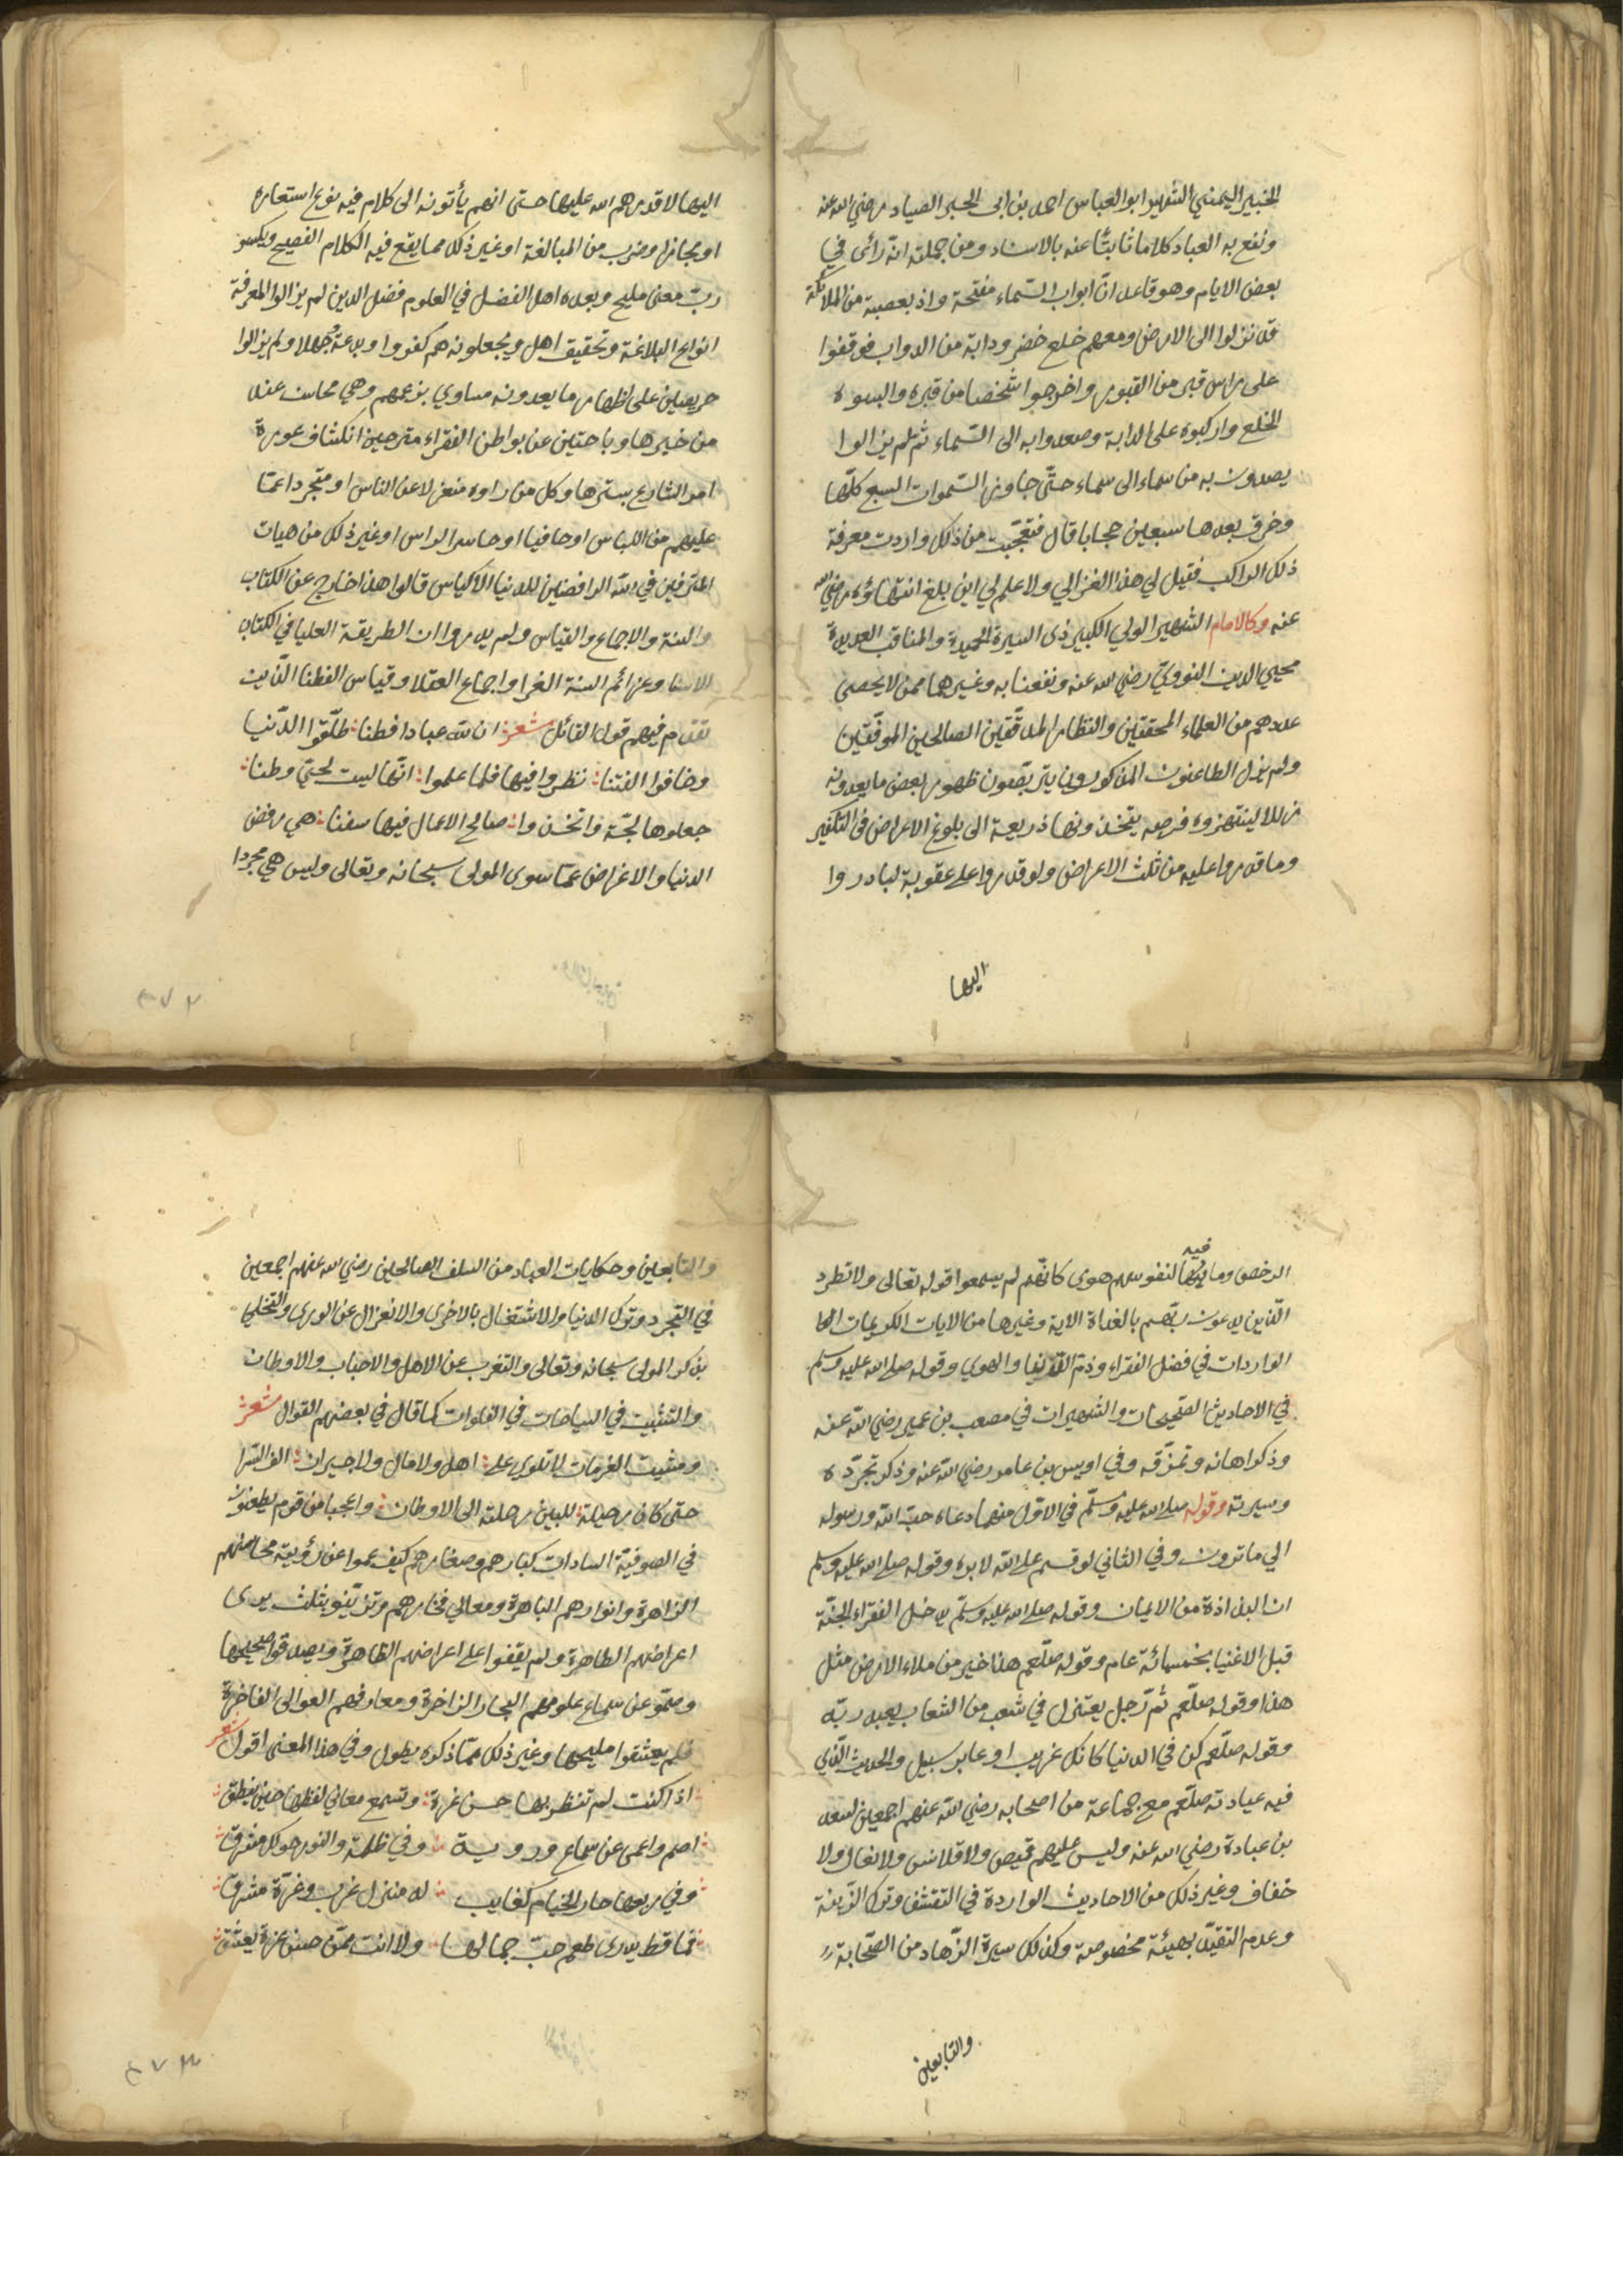 الخبير اليمني الشهير ابو العباس احمد بن ابى الخير الصياد رضي الله عنه
ونفع به العباد كلاما ثابتًا عنه بالاسناد ومن جملته انّه رائى في
بعض الايام وهو قاعد انّ ابواب السّماء مفتحة واذ بعصبة من الملائكة
قد نزلوا الى الارض ومعهم خلع خضر ودابة من الدواب فوقفوا
على راس قبر من القبور واخرجوا شخصا من قبره والبسوه
الخلع واركبوه على الدابة وصعدوا به الى السّماء ثم لم يزالوا
يصعدون به من سماء الى سماء حتّى جاوز السّموات السبع كلّها
وخرق بعدها سبعين حجابا قال فتعجّبت من ذلك واردت معرفة
ذلك الراكب فقيل لي هذا الغزالي ولا علم لي اين بلغ انتهاؤه رضي الله
عنه وكالامام الشهير الولي الكبير ذى السيرة الحميدة والمناقب العديدة
محيي الدين النووي رضي الله عنه ونفعنا به وغيرهما ممن لا يحصى
عددهم من العلماء المحققين والنظار المدقّقين الصالحين الموفّقين
ولم يزل الطاعنون المذكورون يتربّصون ظهور بعض ما يعدونه
زللا لينتهزوه فرصه يتخذونها ذريعة الى بلوغ الاغراض في التكفير
وما قدروا عليه من ثلث الاعراض ولو قدروا على عقوبة لبادروا
اليها
اليها لا قدرهم الله عليها حتى انهم يأتون الى كلام فيه نوع استعاره
او مجاز او ضرب من المبالغة او غير ذلك مما يقع فيه الكلام الفصيح ويكسو
ربّ معنى مليح وبعده اهل الفضل في العلوم فضل الذين لم يزالوا لمعرفة
انواع البلاغة وتحقيق اهل ويجعلونه هم كفروا وبدعة وجهلا ولم يزالوا
حريصين على اظهار ما يعدونه مساوي بزعمهم وهي محاسن عند
من خبرها وباحثين عن بواطن الفقراء مترجين انكشاف عورة
امر الشارع بسترها وكل من راوه منعزلا عن الناس او متجردا عمّا
عليهم من اللباس او حافيا او حاسر الراس او غير ذلك من هيات
المترفين في الله الرافضين للدنيا الاكياس قالوا هذا خارج عن الكتاب
والسنة والاجماع والقياس ولم يدروا ان الطريقة العليا في الكتاب
الاسنا وعزائم السنة الغرا واجماع العقلا وقياس الفطنا الّذين
تقدم فيهم قول القائل شعر ان لله عبادا فطنا طلّقوا الدّنيا
وخافوا الفتنا نظروا فيها فلما علموا انّها ليست لحيّ وطنا
جعلوها لجّة واتخذوا صالح الاعمال فيها سفنا هي رفض
الدنيا والاعراض عمّا سوى المولى سبحانه وتعالى وليس هي مجردا
٢٧٢
الرخص وما فيه لنفوسهم هوى كانّهم لم يسمعوا قوله تعالى ولا تطرد
الّذين يدعون ربّهم بالغداة الاية وغيرها من الايات الكريمات
الواردات في فضل الفقراء وذمّ الدنيا والهوى وقوله صلى الله عليه وسلم
في الاحاديث الصّحيحات والشهيرات في مصعب بن عمير رضي الله عنه
وذكر اهانه وتمزّقه وفي اويس بن عامر رضي الله عنه وذكر تجرّده
وسيرته وقوله صلى الله عليه وسلّم في الاوّل منهما دعاه حبّ الله ورسوله
الي ما ترون وفي الثاني لو قسم على الله لابره وقوله صلى الله عليه وسلم
ان البذاذة من الايمان وقوله صلى الله عليه وسلّم يدخل الفقراء الجنّة
قبل الاغنيا بخمسمائة عام وقوله صلّعم هذا خير من ملاء الارض مثل
هذا وقوله صلّعم ثمّ رّجل يعتزل في شعب من الشعاب يعبد ربّه
وقوله صلّعم كن في الدنيا كانك غريب او عابر سبيل والحديث الّذي
فيه عيادته صلّعم مع جماعة من اصحابه رضي الله عنهم اجمعين لسعد
بن عبادة رضي الله عنه وليس عليهم قميص ولا قلانس ولا نعال ولا
خفاف وغير ذلك من الاحاديث الواردة في التقشّف وترك الزّينة
وعدم التقيّد بهيئة مخصوصة وكذلك سيرة الزّهاد من الصّحابة
والتابعين
والتابعين وحكايات العباد من السلف الصالحين رضي الله عنهم اجمعين
في التجرد وترك الدنيا والاشتغال بالاخرى والانعزال عن الورى والتخلي
بذكر المولى سبحانه وتعالى والتغرب عن الاهل والاحباب والاوطان
والتثبيت في السياحات في الفلوات كما قال في بعضهم القوال شعر
ومشيت العزمات لا تلوى على اهل ولا مال ولا جيران الف السّرا
حتى كان رحيله للبين رحلته الى الاوطان واعجبا من قوم يطعنون
في الصوفيّة السادات كبارهم وصغارهم كيف عموا عن رؤية محاسنهم
الزاهرة وانوارهم الباهرة ومعالي فخارهم
اعراضهم الطاهرة ولم يقفوا على اعراضهم الظاهرة ويصدقوا صحيحها
وصمّو عن سماع علومهم البحار الزاخرة ومعارفهم العوالى الفاخرة
فلم يعشقوا مليحها وغير ذلك ممّا ذكره يطول وفي هذا المعنى اقول شعر
اذا كنت لم تنظر بها حسن غرة وتسمع معاني لفظها حين ينطق
اصم واعمى عن سماع ورويـة وفي ظلمة والنور هولك مشرق
وفي ربعها حار الخيام كغايب له منزل غرب وغرّة مشرق
فما قط يدرى طعم حبّ جمالها ولا انت ممّن حسن غرة يعشق
٢٧٣